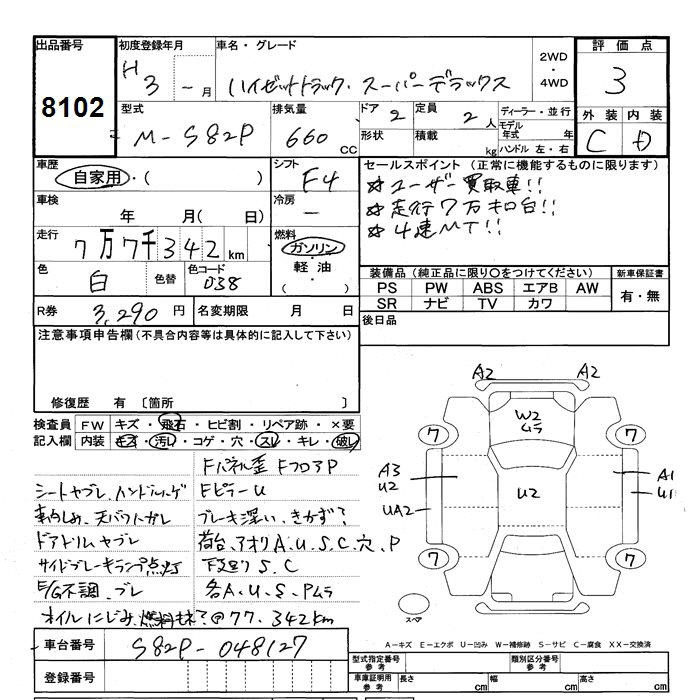 出品番号 初度登録年月 車名・グレード 評価点
8102
H 3 - 月 ハイゼットトラック・スーパーデラックス 2WD ・ 4WD 3
型式 排気量 ドア 2 定員 2 人 ディーラー・並行 外装 内装
M-S82P 660 CC 形状 積載 kg モデル年式 年 C D
ハンドル 左・右
車歴 シフト セールスポイント (正常に機能するものに限ります)
自家用・( ) F4 ☆ユーザー買取車!!
車検 冷房 ☆走行7万キロ台!!
年 月( 日) - ☆4速MT!!
走行 燃料
7万7千342km ガソリン・軽油・( )
色 色替 色コード 装備品 (純正品に限り○をつけてください) 新車保証書
白 038 PS PW ABS エアB AW 有・無
SR ナビ TV カワ
R券 3,290 円 名変期限 月 日 後日品
注意事項申告欄(不具合内容等は具体的に記入して下さい)
修復歴 有 〔箇所 〕
検査員 FW キズ・飛石・ヒビ割・リペア跡・×要
記入欄 内装 キズ・汚れ・コゲ・穴・スレ・キレ・破れ
Fパネル歪 FフロアP
シートヤブレ、ハンドルハゲ FピラーU
車内しみ、天バワトガレ ブレーキ深い、きかず?
ドアトリムヤブレ 荷台、アオリA、U、S、C、穴、P
サイドブレーキランプ点灯 下廻りS、C
E/G不調、ブレ 各A、U、S、Pムラ
オイルにじみ、燃料もれ?@77,342km
A2 A2
W2
ムラ
7 7
A3 A1
U2 U2 U1
UA2
7 7
スペア
A-キズ E-エクボ U-凹み W-補修跡 S-サビ C-腐食 XX-交換済
車台番号 S82P-048127
登録番号
型式指定番号 参考 類別区分番号 参考
車庫証明用 参考 長さ cm 幅 cm 高さ cm